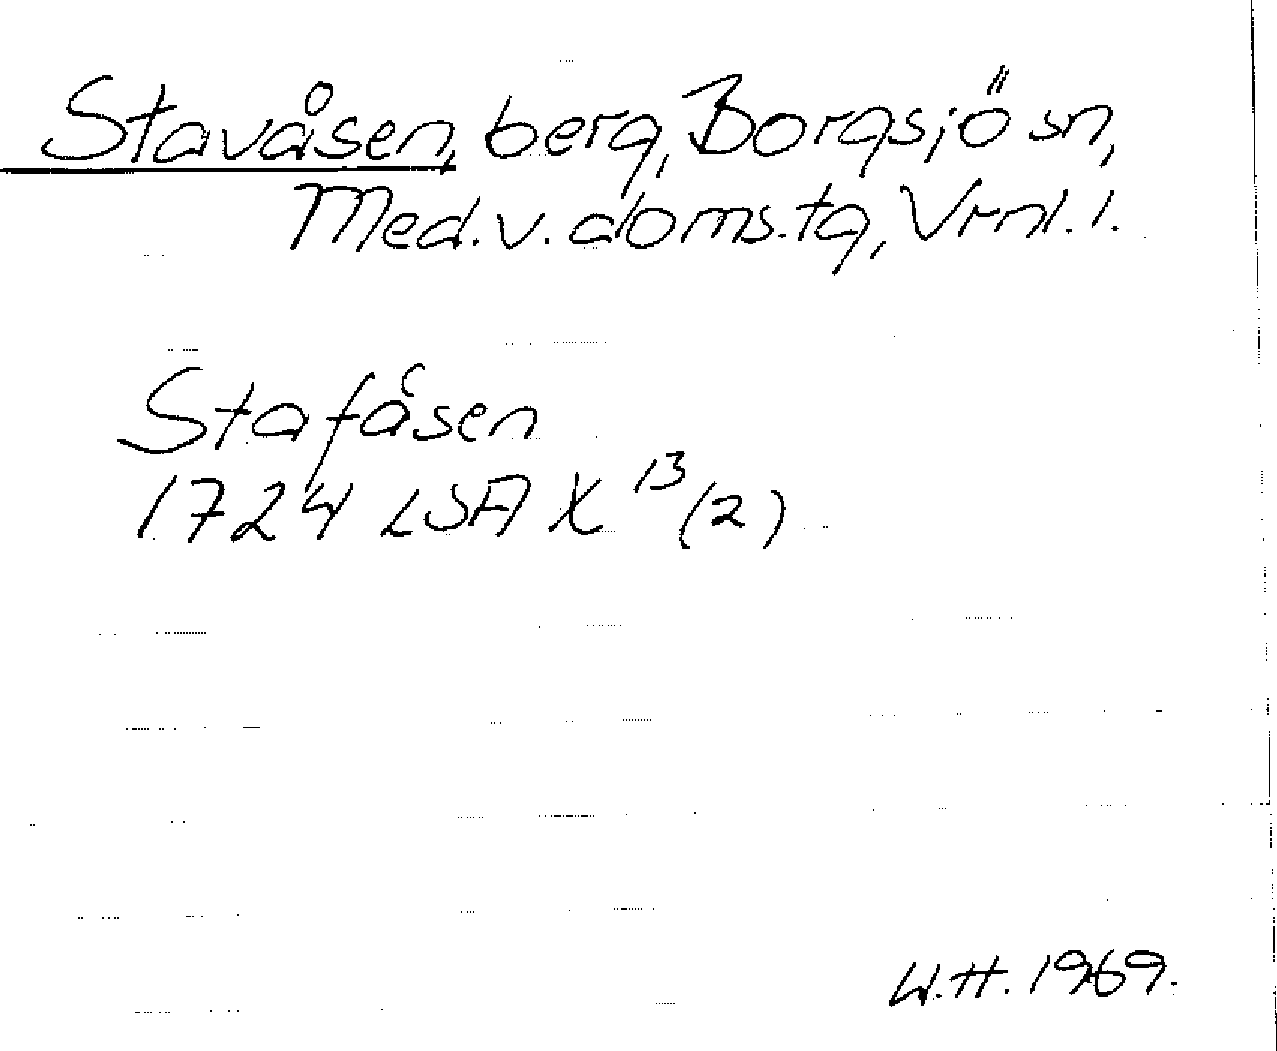 Stavåsen, berg, Borgsjö sn,
Med. v. doms. tg, Vrnl. l.
Stafåsen
1724 LSA X 13 (2)
W.H. 1969.